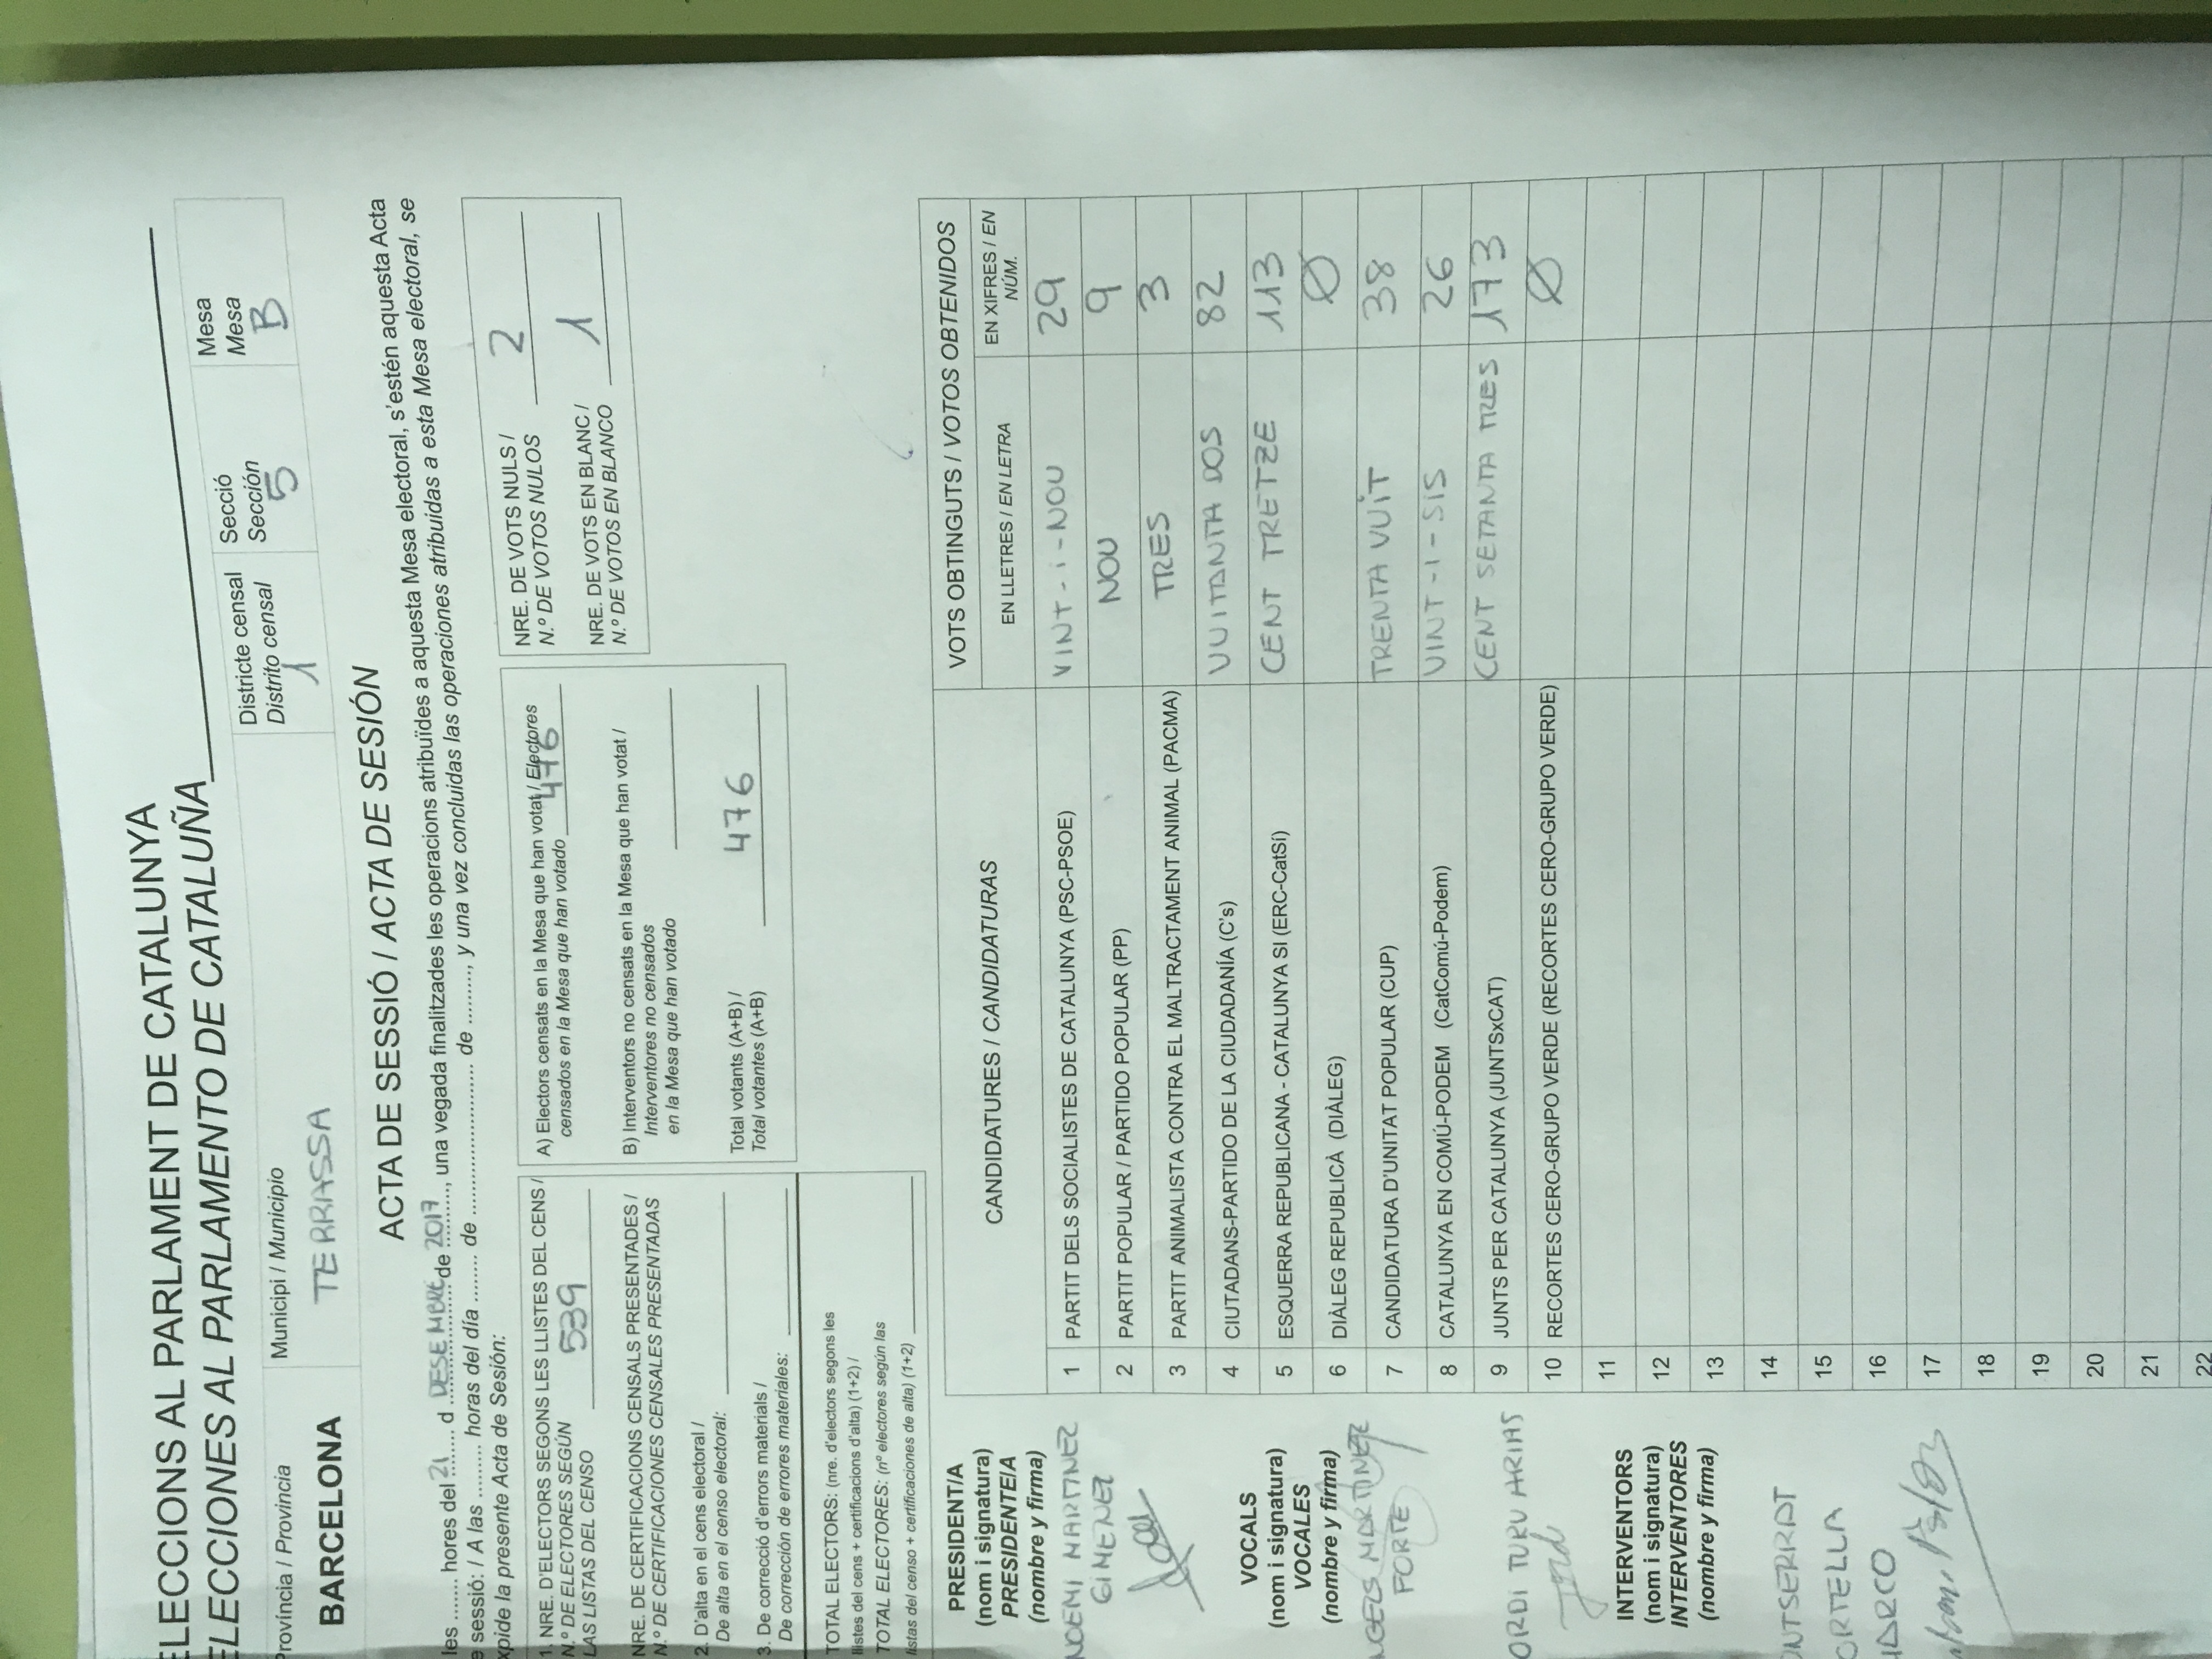 ELECCIONS AL PARLAMENT DE CATALUNYA
ELECCIONES AL PARLAMENTO DE CATALUÑA
Província / Provincia
BARCELONA
Municipi / Municipio
TERRASSA
Districte censal
Distrito censal
1
Secció
Sección
5
Mesa
Mesa
B
ACTA DE SESSIÓ / ACTA DE SESIÓN
les ....... hores del 21 ...... d DESEMBRE de 2017, una vegada finalitzades les operacions atribuïdes a aquesta Mesa electoral, s'estén aquesta Acta
sessió: / A las ......... horas del día ........ de .......................... de ........., y una vez concluidas las operaciones atribuidas a esta Mesa electoral, se
xpide la presente Acta de Sesión:
1. NRE. D'ELECTORS SEGONS LES LLISTES DEL CENS /
N.º DE ELECTORES SEGÚN
LAS LISTAS DEL CENSO 539
NRE. DE CERTIFICACIONS CENSALS PRESENTADES /
N.º DE CERTIFICACIONES CENSALES PRESENTADAS
2. D'alta en el cens electoral /
De alta en el censo electoral:
3. De correcció d'errors materials /
De corrección de errores materiales:
TOTAL ELECTORS: (nre. d'electors segons les
llistes del cens + certificacions d'alta) (1+2) /
TOTAL ELECTORES: (nº electores según las
listas del censo + certificaciones de alta) (1+2)
A) Electors censats en la Mesa que han votat / Electores
censados en la Mesa que han votado 476
B) Interventors no censats en la Mesa que han votat /
Interventores no censados
en la Mesa que han votado
Total votants (A+B) /
Total votantes (A+B) 476
NRE. DE VOTS NULS /
N.º DE VOTOS NULOS 2
NRE. DE VOTS EN BLANC /
N.º DE VOTOS EN BLANCO 1
PRESIDENT/A
(nom i signatura)
PRESIDENTE/A
(nombre y firma)
NOEMI MARTINEZ
GIMENEZ
VOCALS
(nom i signatura)
VOCALES
(nombre y firma)
NGELS MARTINEZ
FORTE
ORDI TURU ARIAS
Jordi
INTERVENTORS
(nom i signatura)
INTERVENTORES
(nombre y firma)
ONTSERRAT
ORTELLA
MARCO
CANDIDATURES / CANDIDATURAS
VOTS OBTINGUTS / VOTOS OBTENIDOS
EN LLETRES / EN LETRA
EN XIFRES / EN
NÚM.
1 PARTIT DELS SOCIALISTES DE CATALUNYA (PSC-PSOE) VINT-I-NOU 29
2 PARTIT POPULAR / PARTIDO POPULAR (PP) NOU 9
3 PARTIT ANIMALISTA CONTRA EL MALTRACTAMENT ANIMAL (PACMA) TRES 3
4 CIUTADANS-PARTIDO DE LA CIUDADANÍA (C's) VUITANTA DOS 82
5 ESQUERRA REPUBLICANA - CATALUNYA SI (ERC-CatSí) CENT TRETZE 113
6 DIÀLEG REPUBLICÀ (DIÀLEG) Ø
7 CANDIDATURA D'UNITAT POPULAR (CUP) TRENTA VUIT 38
8 CATALUNYA EN COMÚ-PODEM (CatComú-Podem) VINT-I-SIS 26
9 JUNTS PER CATALUNYA (JUNTSxCAT) CENT SETANTA TRES 173
10 RECORTES CERO-GRUPO VERDE (RECORTES CERO-GRUPO VERDE) Ø
11
12
13
14
15
16
17
18
19
20
21
22